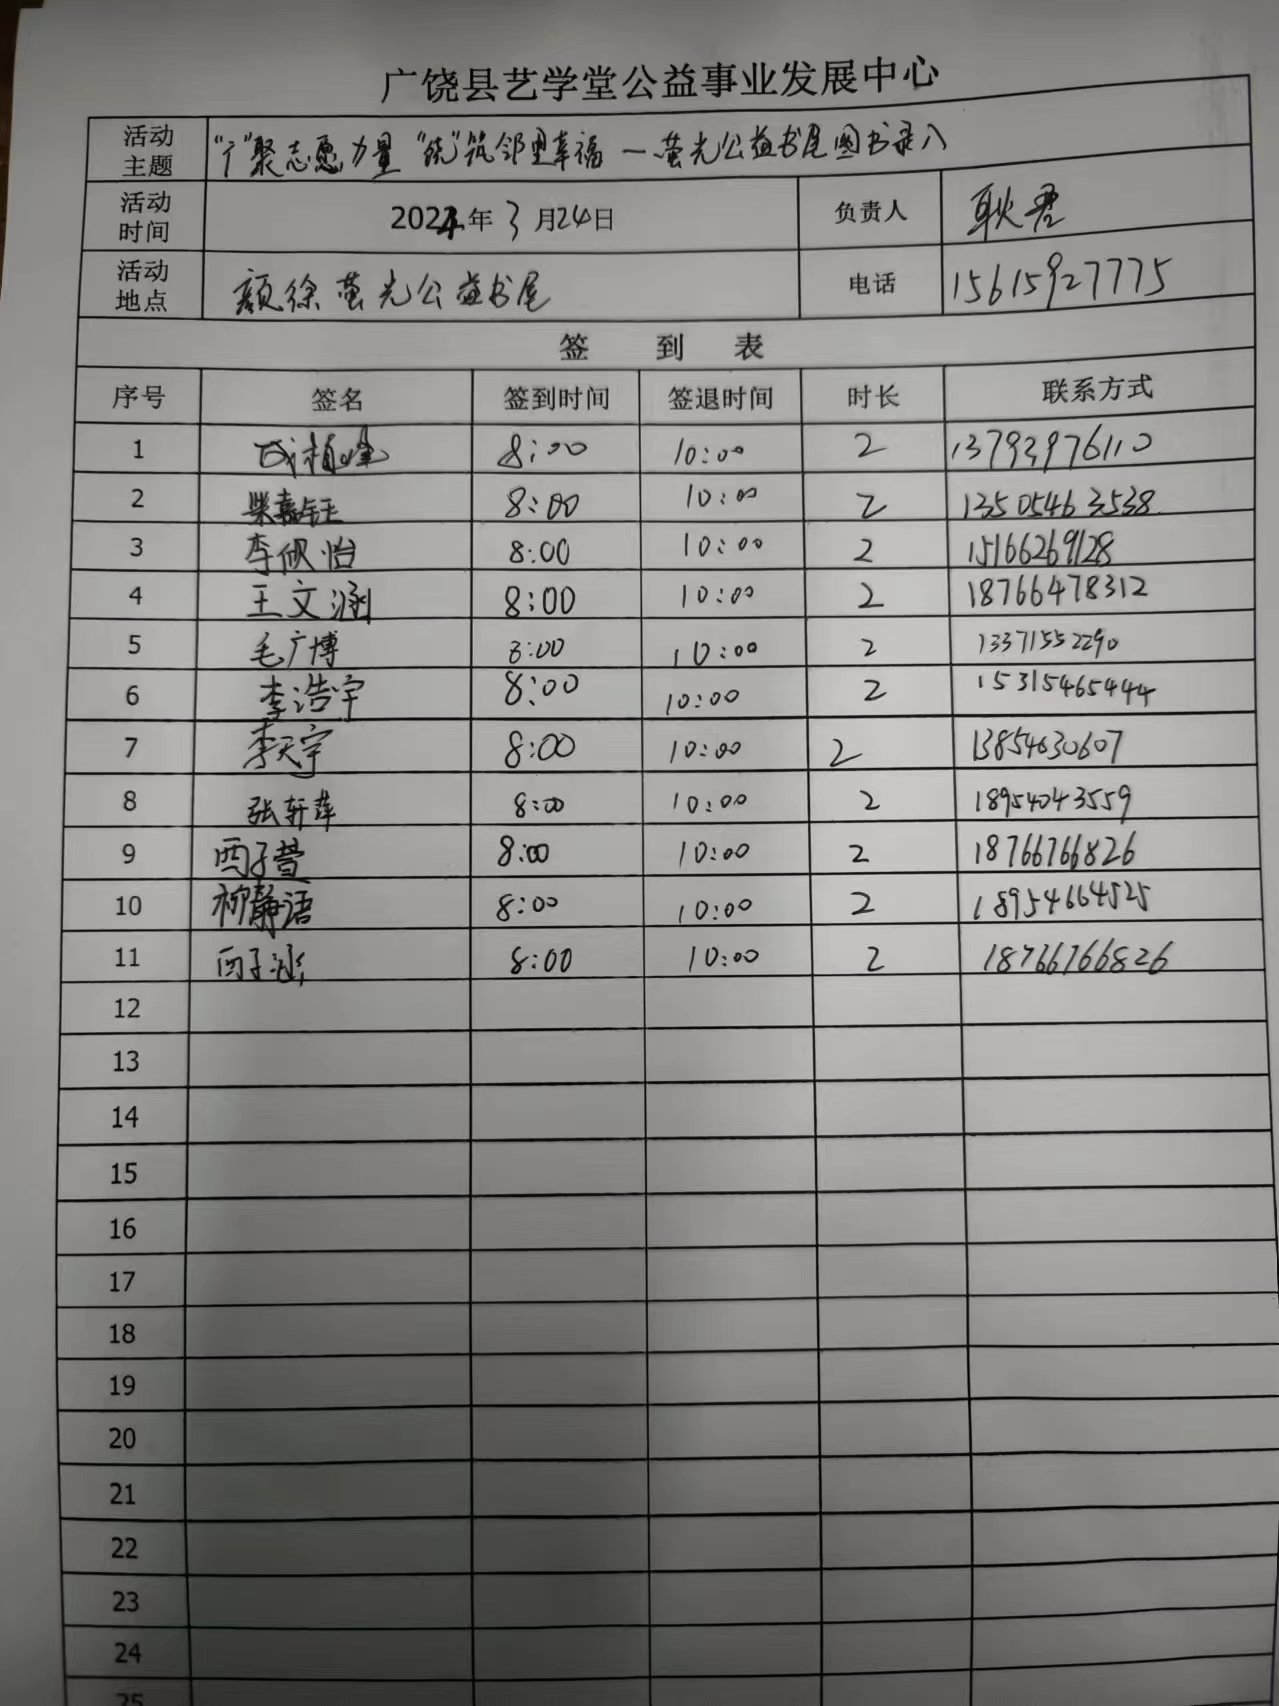 广饶县艺学堂公益事业发展中心
活动主题 "广"聚志愿力量 "饶"筑邻里幸福 一萤光公益书屋图书录入
活动时间 2024年3月24日 负责人 耿君
活动地点 颜徐萤光公益书屋 电话 15615927775
签 到 表
序号 签名 签到时间 签退时间 时长 联系方式
1 8:00 10:00 2 13793976110
2 柴嘉钰 8:00 10:00 2 13505463538
3 李佩怡 8:00 10:00 2 15166269128
4 王文涵 8:00 10:00 2 18766478312
5 毛广博 8:00 10:00 2 13371552290
6 李浩宇 8:00 10:00 2 15315465444
7 李天宇 8:00 10:00 2 13854630607
8 张轩萍 8:00 10:00 2 18954043559
9 西子萱 8:00 10:00 2 18766766826
10 柳静语 8:00 10:00 2 18954664525
11 西子涵 8:00 10:00 2 18766766826
12
13
14
15
16
17
18
19
20
21
22
23
24
25